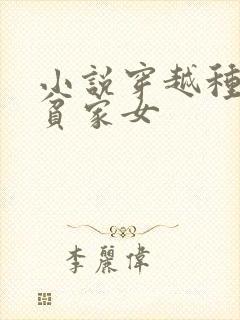 小說穿越種
貧家女
李麗偉